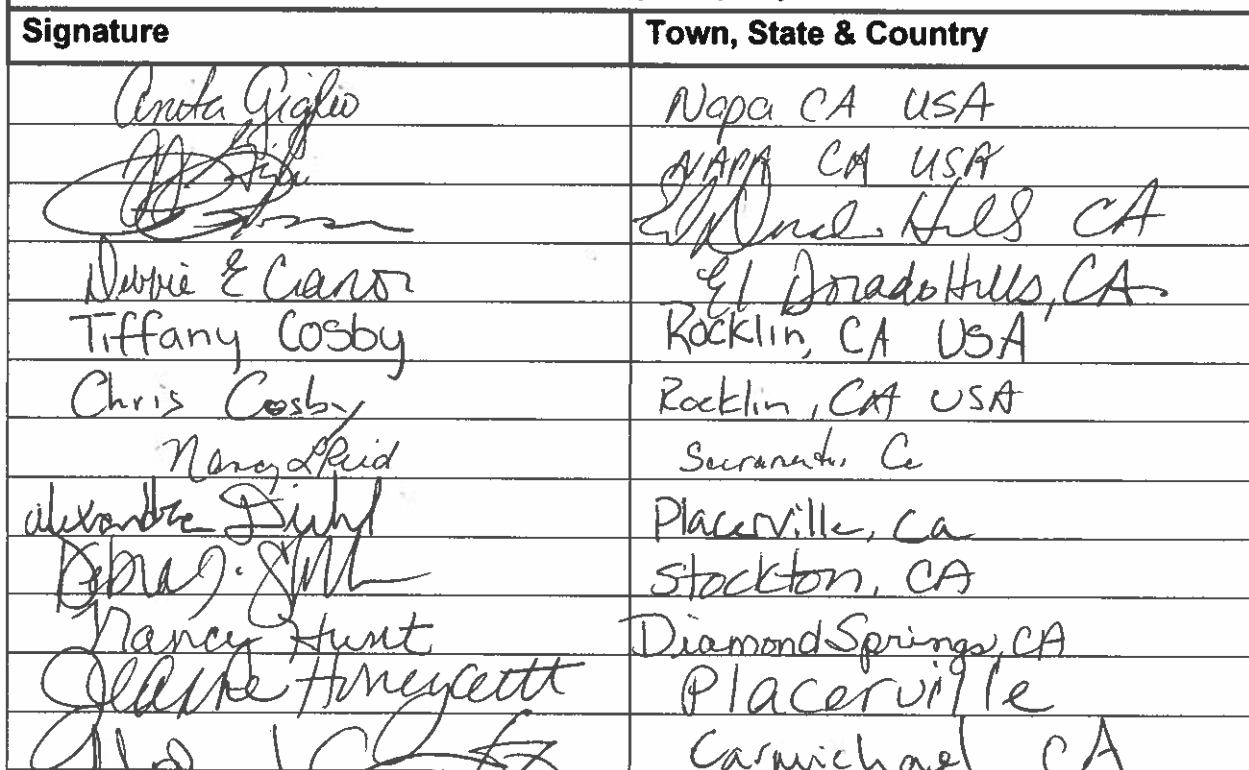 Signature Town, State & Country
Anita Giglio Napa CA USA
Giglio NAPA CA USA
El Dorado Hills CA
Debbie E El Dorado Hills, CA
Tiffany Cosby Rocklin, CA USA
Chris Cosby Rocklin, CA USA
Nancy L Reid Sacramento, Ca
Alexandra Diehl Placerville, Ca
Debra J. Stockton, CA
Nancy Hunt Diamond Springs, CA
Jeanne Honeycutt Placerville
Carmichael CA